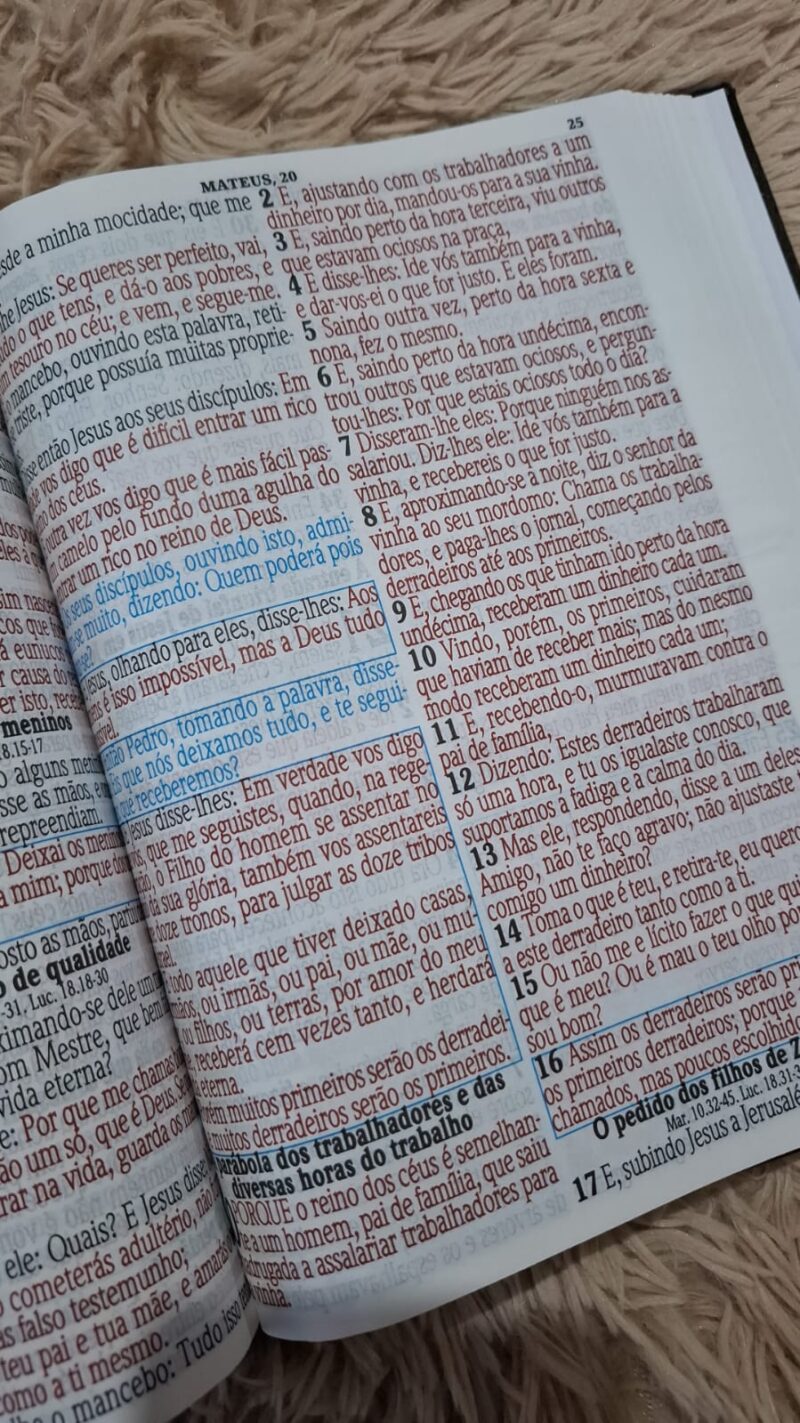 MATEUS, 20
25
os po
im nasce
eunuco
r causa do
er isto, rece
meninos
8.15-17
alguns meni
sse as mãos, e
repreendiam.
Deixai os meni
a mim; porque do
osto as mãos, partiu
o de qualidade
-31. Luc. 18.18-30
ximando-se dele um
om Mestre, que bem
vida eterna?
e: Por que me chamas b
ão um só, que é Deus. Se
rar na vida, guarda os m
ele: Quais? E Jesus disse
o cometerás adultério, não
ás falso testemunho;
teu pai e tua mãe, e amarás
como a ti mesmo.
o mancebo: Tudo isso
esde a minha mocidade; que me
he Jesus: Se queres ser perfeito, vai,
udo o que tens, e dá-o aos pobres, e
m tesouro no céu; e vem, e segue-me.
o mancebo, ouvindo esta palavra, reti-
triste, porque possuía muitas proprie-
sse então Jesus aos seus discípulos: Em
de vos digo que é difícil entrar um rico
no dos céus.
outra vez vos digo que é mais fácil pas-
m camelo pelo fundo duma agulha do
ntrar um rico no reino de Deus.
seus discípulos, ouvindo isto, admi-
-se muito, dizendo: Quem poderá pois
se?
Jesus, olhando para eles, disse-lhes: Aos
ns é isso impossível, mas a Deus tudo
sível.
ntão Pedro, tomando a palavra, disse-
Eis que nós deixamos tudo, e te segui-
que receberemos?
Jesus disse-lhes: Em verdade vos digo
ós, que me seguistes, quando, na rege-
ão, o Filho do homem se assentar no
da sua glória, também vos assentareis
doze tronos, para julgar as doze tribos
rael.
todo aquele que tiver deixado casas,
mãos, ou irmãs, ou pai, ou mãe, ou mu-
ou filhos, ou terras, por amor do meu
receberá cem vezes tanto, e herdará
eterna.
rém muitos primeiros serão os derradei-
muitos derradeiros serão os primeiros.
parábola dos trabalhadores e das
diversas horas do trabalho
PORQUE o reino dos céus é semelhan-
te a um homem, pai de família, que saiu
adrugada a assalariar trabalhadores para
vinha.
2 E, ajustando com os trabalhadores a um
dinheiro por dia, mandou-os para a sua vinha.
3 E, saindo perto da hora terceira, viu outros
que estavam ociosos na praça,
4 E disse-lhes: Ide vós também para a vinha,
e dar-vos-ei o que for justo. E eles foram.
5 Saindo outra vez, perto da hora sexta e
nona, fez o mesmo.
6 E, saindo perto da hora undécima, encon-
trou outros que estavam ociosos, e pergun-
tou-lhes: Por que estais ociosos todo o dia?
7 Disseram-lhe eles: Porque ninguém nos as-
salariou. Diz-lhes ele: Ide vós também para a
vinha, e recebereis o que for justo.
8 E, aproximando-se a noite, diz o senhor da
vinha ao seu mordomo: Chama os trabalha-
dores, e paga-lhes o jornal, começando pelos
derradeiros até aos primeiros.
9 E, chegando os que tinham ido perto da hora
undécima, receberam um dinheiro cada um.
10 Vindo, porém, os primeiros, cuidaram
que haviam de receber mais; mas do mesmo
modo receberam um dinheiro cada um;
11 E, recebendo-o, murmuravam contra o
pai de família,
12 Dizendo: Estes derradeiros trabalharam
só uma hora, e tu os igualaste conosco, que
suportamos a fadiga e a calma do dia.
13 Mas ele, respondendo, disse a um deles
Amigo, não te faço agravo; não ajustaste t
comigo um dinheiro?
14 Toma o que é teu, e retira-te, eu quero
a este derradeiro tanto como a ti.
15 Ou não me e lícito fazer o que qui
que é meu? Ou é mau o teu olho por
sou bom?
16 Assim os derradeiros serão pri
os primeiros derradeiros; porque
chamados, mas poucos escolhido
O pedido dos filhos de Z
Mar. 10.32-45. Luc. 18.31-3
17 E, subindo Jesus a Jerusalé